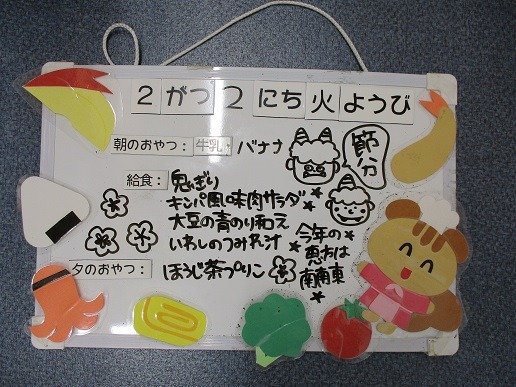 2 がつ 2 にち 火 ようび
朝のおやつ: 牛乳・バナナ
節分
給食: 鬼ぎり
キンパ風味肉サラダ
大豆の青のり和え
いわしのつみれ汁
今年の
恵方は
南南東
夕のおやつ: ほうじ茶プリン